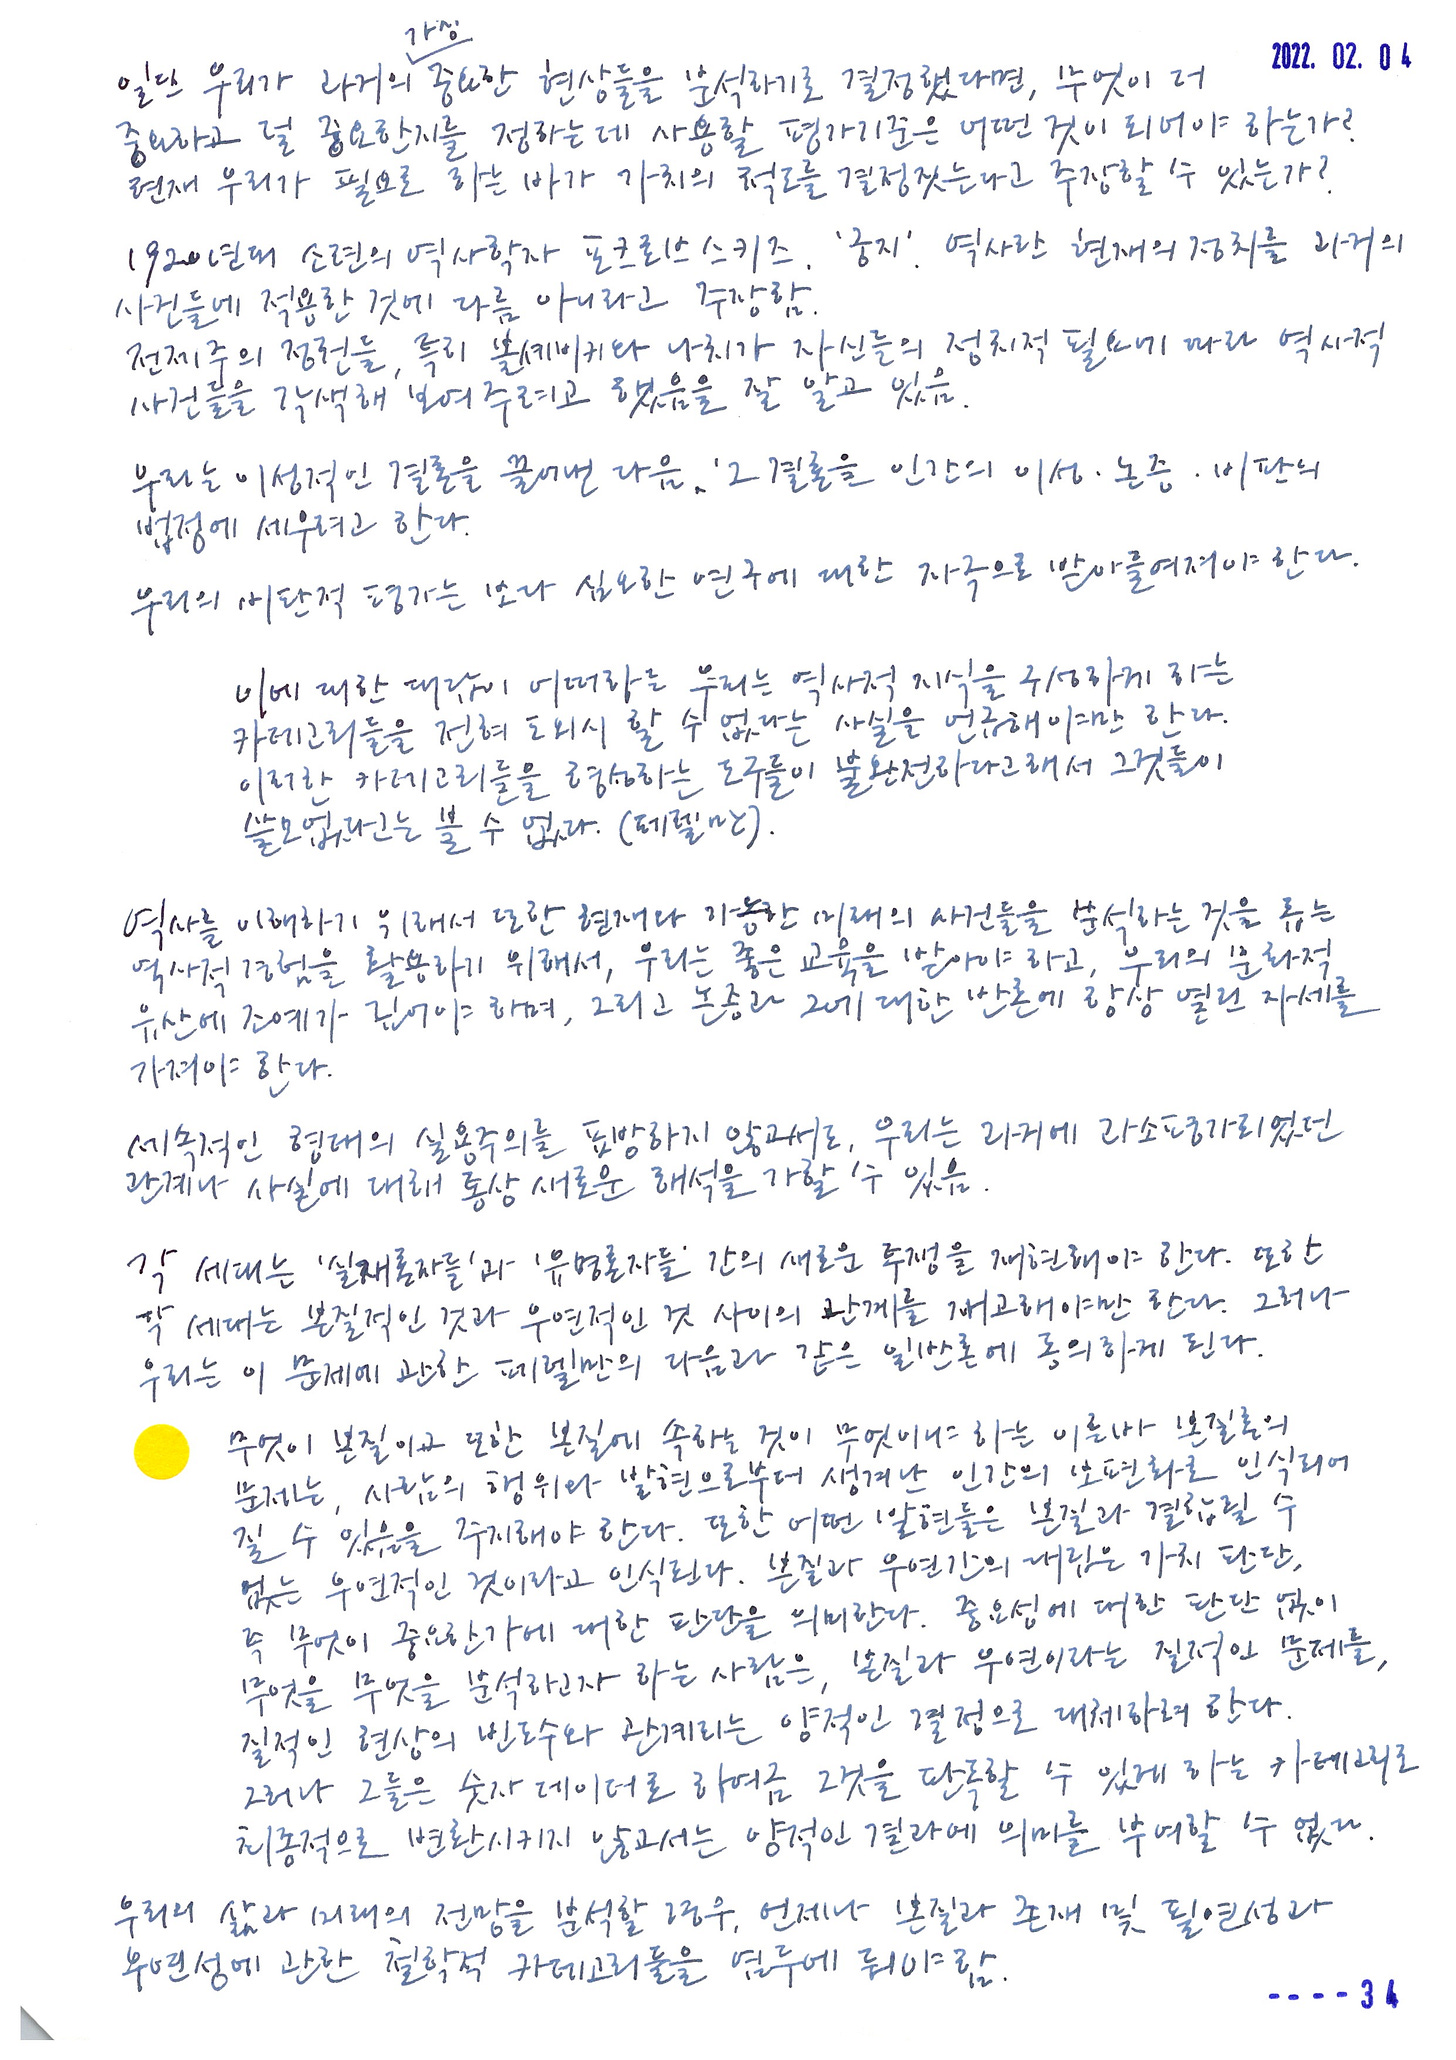 가장
2022. 02. 04
일단 우리가 과거의 중요한 현상들을 분석하기로 결정했다면, 무엇이 더
중요하고 덜 중요한지를 정하는데 사용할 평가기준은 어떤 것이 되어야 하는가?
현재 우리가 필요로 하는 바가 가치의 척도를 결정짓는다고 주장할 수 있는가?
1920년대 소련의 역사학자 포크로브스키즈. '중지'. 역사란 현재의 정치를 과거의
사건들에 적용한 것에 다름 아니라고 주장함.
전제주의 정권들, 특히 볼셰비키와 나치가 자신들의 정치적 필요에 따라 역사적
사건들을 각색해 보여주려고 했음을 잘 알고 있음.
우리는 이성적인 결론을 끌어낸 다음, 그 결론을 인간의 이성·논증·비판의
법정에 세우려고 한다.
우리의 비판적 평가는 보다 심오한 연구에 대한 자극으로 받아들여져야 한다.
이에 대한 대답이 어떠하든 우리는 역사적 지식을 구성하게 하는
카테고리들을 전혀 도외시 할 수 없다는 사실을 언급해야만 한다.
이러한 카테고리들을 형성하는 도구들이 불완전하다고해서 그것들이
쓸모없다고는 볼 수 없다. (페렐만).
역사를 이해하기 위해서 또한 현재와 가능한 미래의 사건들을 분석하는 것을 돕는
역사적 경험을 활용하기 위해서, 우리는 좋은 교육을 받아야 하고, 우리의 문화적
유산에 조예가 깊어야 하며, 그리고 논증과 그에 대한 반론에 항상 열린 자세를
가져야 한다.
세속적인 형태의 실용주의를 표방하지 않고서도, 우리는 과거에 과소평가되었던
관계나 사실에 대해 통상 새로운 해석을 가할 수 있음.
각 세대는 '실재론자들'과 '유명론자들' 간의 새로운 투쟁을 재현해야 한다. 또한
각 세대는 본질적인 것과 우연적인 것 사이의 관계를 재고해야만 한다. 그러나
우리는 이 문제에 관한 페렐만의 다음과 같은 일반론에 동의하게 된다.
무엇이 본질이고 또한 본질에 속하는 것이 무엇이냐 하는 이른바 본질론의
문제는, 사람의 행위와 발현으로부터 생겨난 인간의 보편화로 인식되어
질 수 있음을 주지해야 한다. 또한 어떤 발현들은 본질과 결합될 수
없는 우연적인 것이라고 인식된다. 본질과 우연간의 대립은 가치 판단,
즉 무엇이 중요한가에 대한 판단을 의미한다. 중요성에 대한 판단 없이
무엇을 무엇을 분석하고자 하는 사람은, 본질과 우연이라는 질적인 문제를,
질적인 현상의 빈도수와 관계되는 양적인 결정으로 대체하려 한다.
그러나 그들은 숫자 데이터로 하여금 그것을 판독할 수 있게 하는 카테고리로
최종적으로 변환시키지 않고서는 양적인 결과에 의미를 부여할 수 없다.
우리의 삶과 미래의 전망을 분석할 경우, 언제나 본질과 존재 및 필연성과
우연성에 관한 철학적 카테고리들을 염두에 둬야 함.
----34